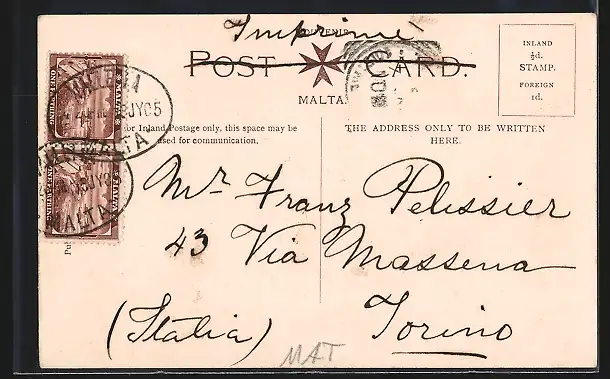 Imprimé
SOUVENIR
POST CARD.
MALTA
INLAND
½d.
STAMP.
FOREIGN
1d.
For Inland Postage only, this space may be
used for communication.
THE ADDRESS ONLY TO BE WRITTEN
HERE.
MALTA
ONE FARTHING
JY 05
MALTA
MALTA
ONE FARTHING
JY 05
MALTA
Mr. Franz Pelissier
43 Via Massena
(Italia) Torino
MAT